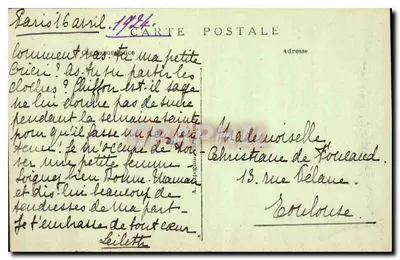 Paris 16 avril. 1924.
CARTE POSTALE
Correspondance
Adresse
Comment vas-tu ma petite
? As-tu vu partir les
cloches? Chiffon est-il sage
ne lui donne pas de sucre
pendant la semaine sainte
pour qu'il fasse
Je m'occupe de
une petite femme
Soigne bien Bonne-Maman
et dis-lui beaucoup de
tendresses de ma part-
Je t'embrasse de tout cœur.
Mademoiselle
Christiane de Foulaud.
13. rue Pélane.
Toulouse.